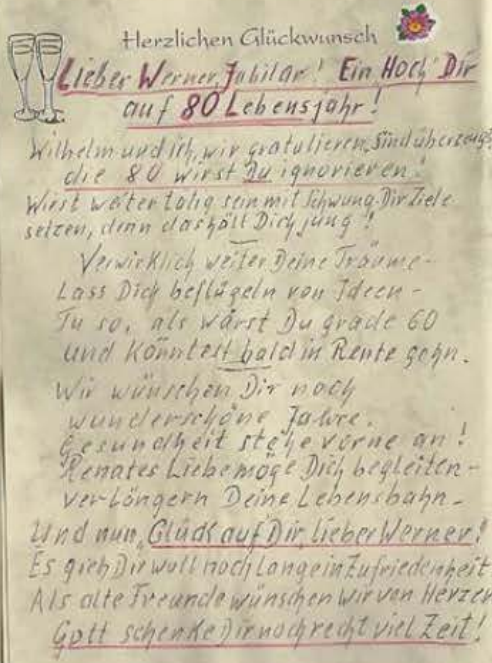 Herzlichen Glückwunsch
Lieber Werner, Jubilar! Ein Hoch Dir
auf 80 Lebensjahr!
Wilhelm und ich, wir gratulieren, sind überzeugt
die 80 wirst Du ignorieren!
Wirst weiter tätig sein mit Schwung, Dir Ziele
setzen, denn das hält Dich jung!
Verwirklich weiter Deine Träume -
Lass Dich beflügeln von Ideen -
Tu so, als wärst Du grade 60
und könntest bald in Rente gehn.
Wir wünschen Dir noch
wunderschöne Jahre.
Gesundheit stehe vorne an!
Renates Liebe möge Dich begleiten -
verlängern Deine Lebensbahn -
Und nun "Glück auf" Dir, lieber Werner!
Es gieh Dir woll noch lange in Zufriedenheit
Als alte Freunde wünschen wir von Herzen
Gott schenke Dir noch recht viel Zeit!